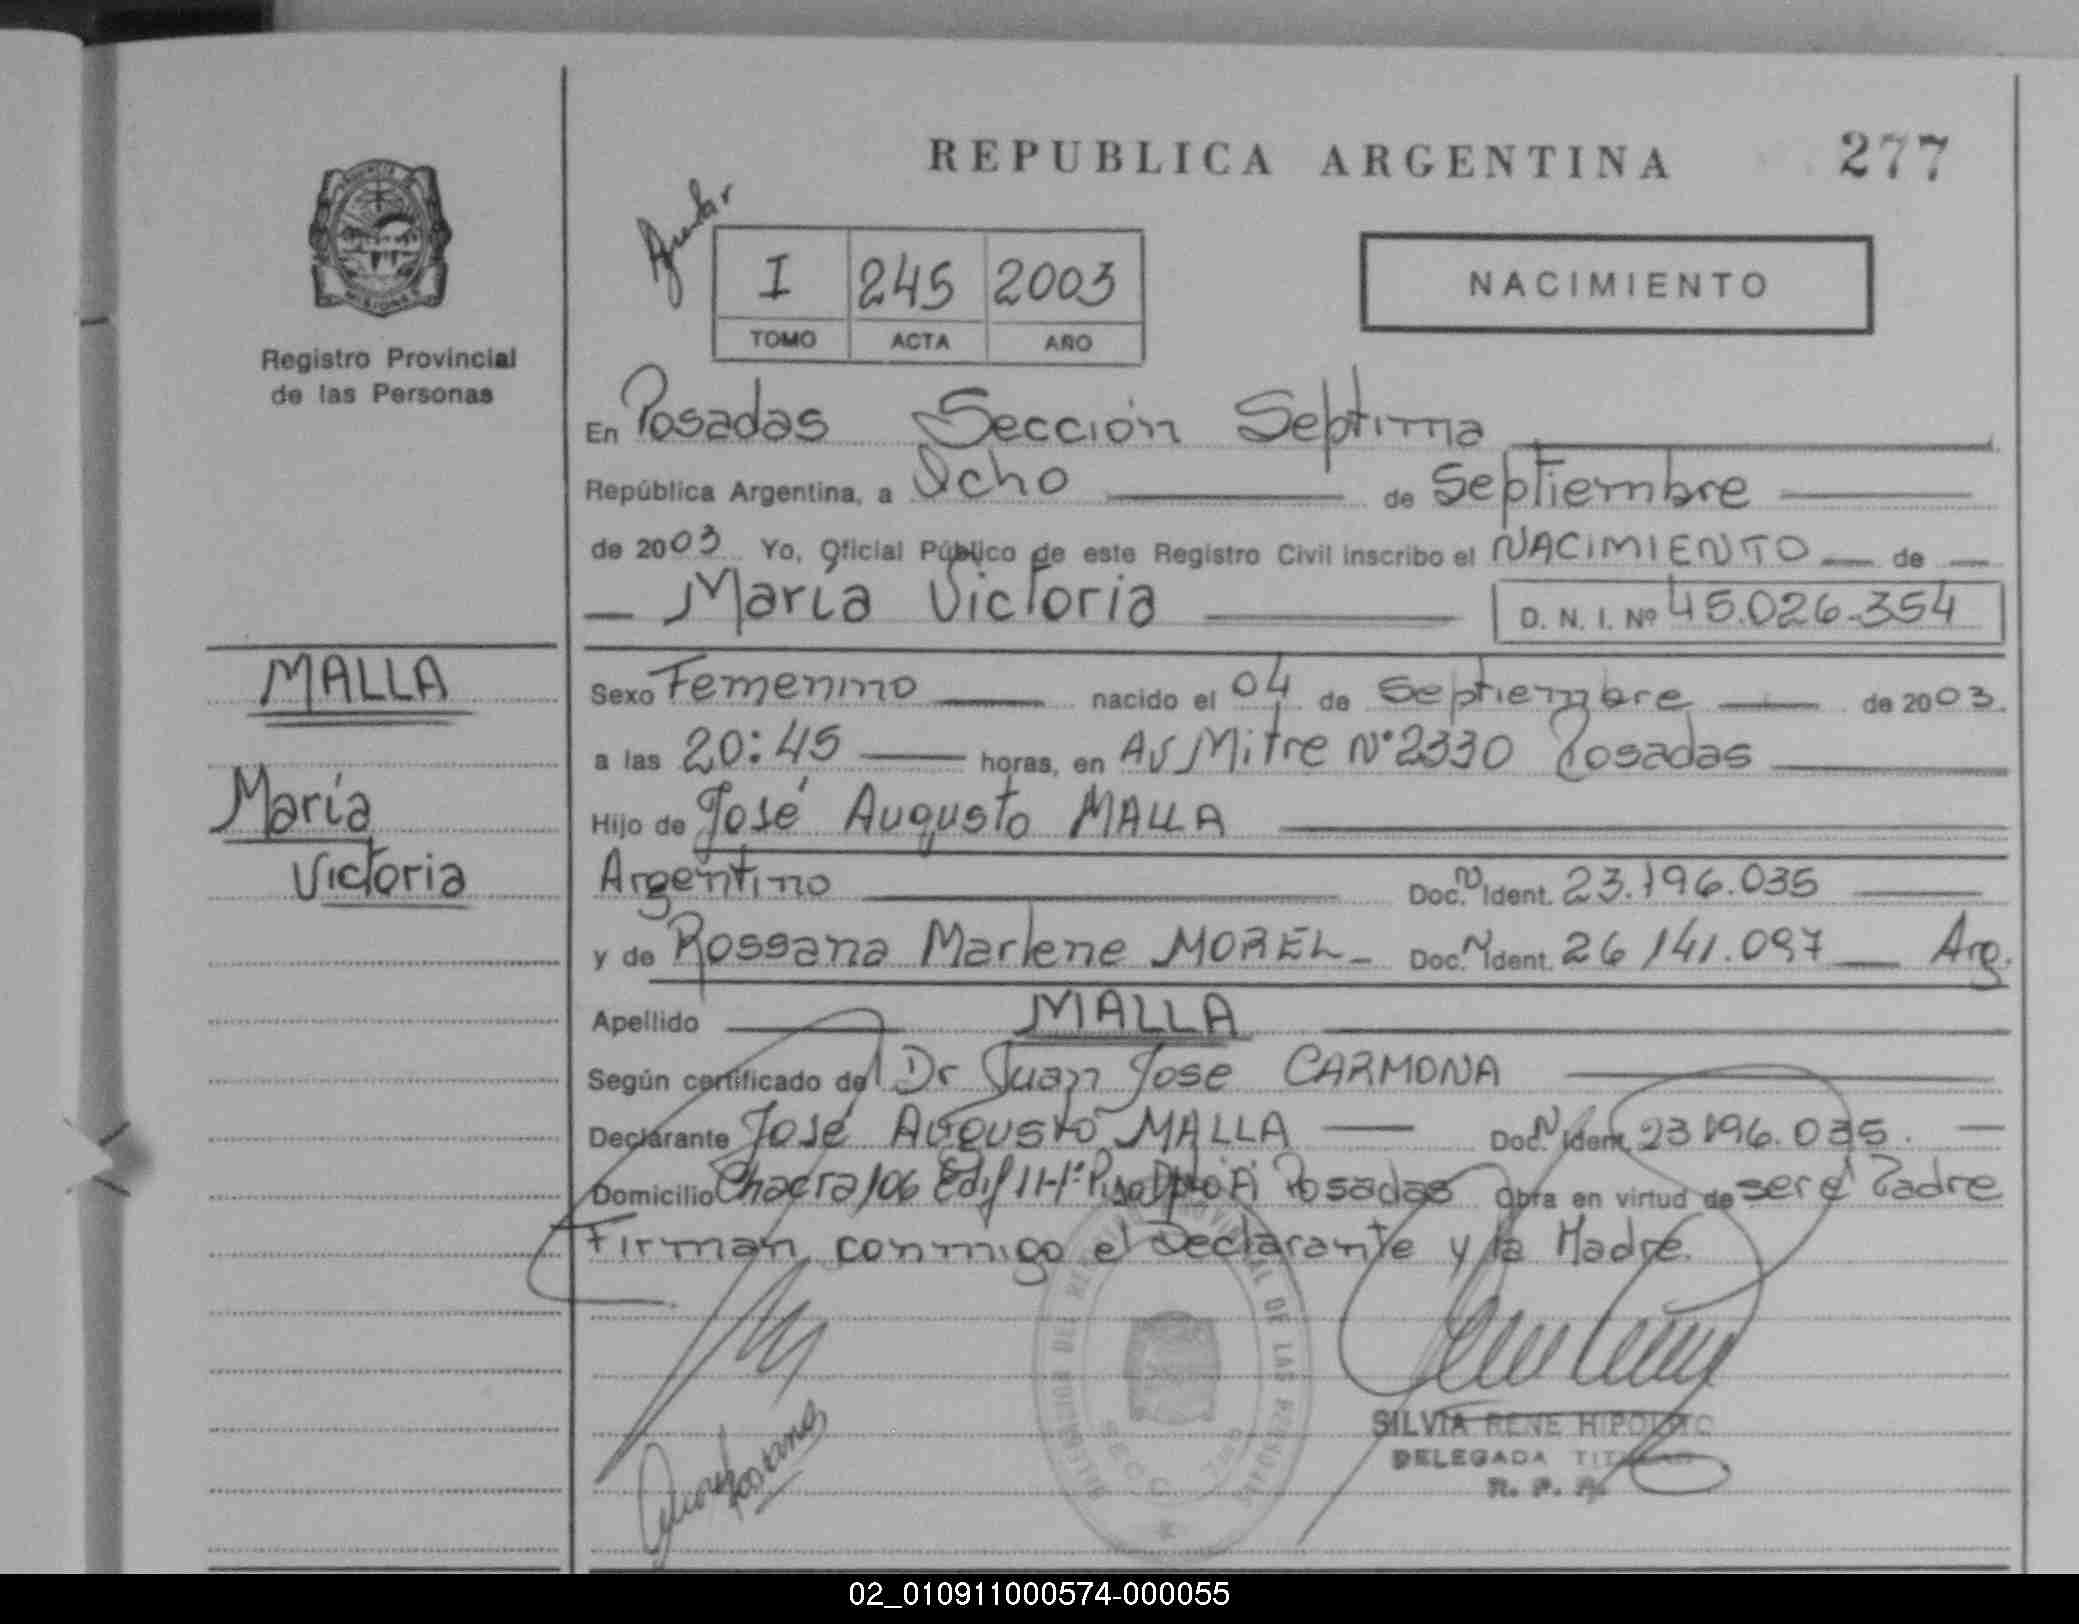 REPUBLICA ARGENTINA
277
I 245 2003
TOMO ACTA AÑO
NACIMIENTO
Registro Provincial
de las Personas
En Posadas Sección Septima
República Argentina, a Ocho de Septiembre
de 2003 Yo, Oficial Público de este Registro Civil inscribo el NACIMIENTO de
María Victoria D. N. I. Nº 45.026.354
MALLA
María
Victoria
Sexo Femenino nacido el 04 de Septiembre de 2003
a las 20:45 horas, en Av Mitre N° 2330 Posadas
Hijo de José Augusto MALLA
Argentino Doc. N Ident. 23.196.035
y de Rossana Marlene MOREL Doc. N Ident. 26 141.097 Arg.
Apellido MALLA
Según certificado de Dr Juan Jose CARMONA
Declarante José Augusto MALLA Doc. N Ident. 23 196.035.
Domicilio Chacra 106 Edif 11-1° Piso Dpto A Posadas Obra en virtud de ser él Padre
Firman conmigo el Declarante y la Madre.
DELEGACION DEL REGISTRO PROVINCIAL DE LAS PERSONAS
SECC.
SILVIA RENE HIPOLITO
DELEGADA TITULAR
R. P. P.
02_010911000574-000055